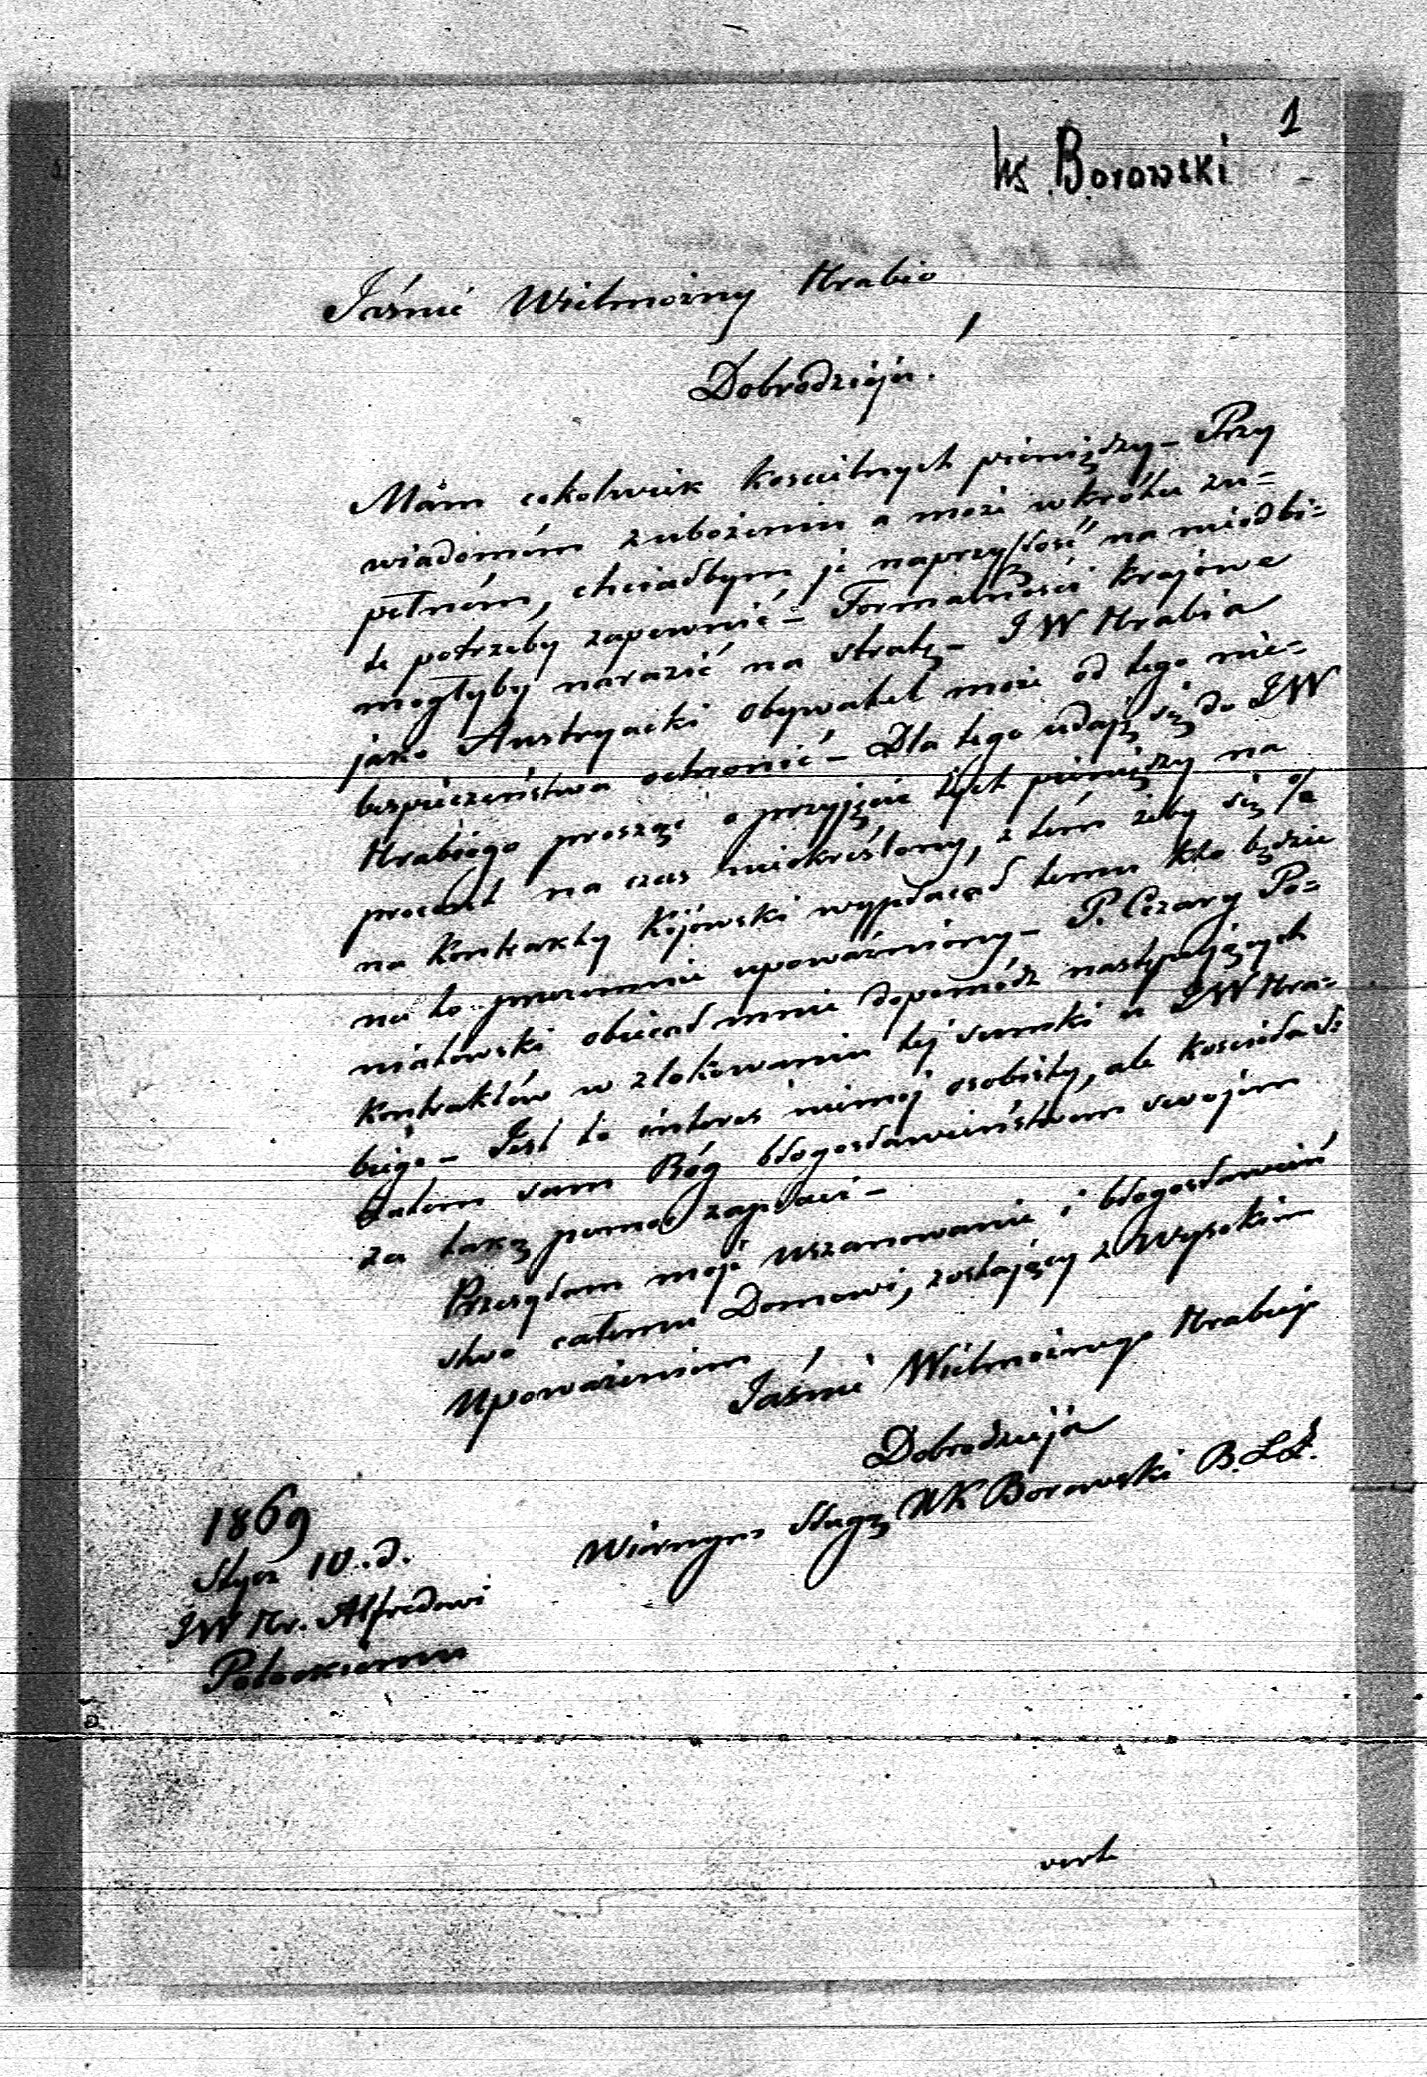 1
Ks. Borowski
Jaśnie Wielmożny Hrabio
Dobrodzieju.
Mam cokolwiek koscielnych pieniędzy – Przy
wiadomém zubożeniu a może wkrótce zu=
pełném, chciałbym je naprzyszłość na niedbi=
te potrzeby zapewnić – Formalności krajowe
mogłyby narazić na stratę – JW Hrabia
jako Austryacki obywatel może od tego nie=
bezpieczeństwa ochronić – Dla tego udaję się do JW
Hrabiego prosząc o przyjęcie tych pieniędzy na
procent na czas nieokreślony, z tém żeby się %
na kontrakty Kijowski wypłacał temu kto będzie
na to przezemnie upoważniony – P. Cezary Po=
niatowski obiecał mnie dopomódz następujących
kontraktów w zlokowaniu tej sumki u JW Hra=
biego – Jest to interes niemój osobisty, ale kościoła
zatem sam Bóg błogosławieństwem swojém
za taką pomoc zapłaci –
Przesyłam moje uszanowanie i błogosławień
stwo całemu Domowi, zostający z wysokim
Upoważeniem
Jaśnie Wielmożnego Hrabiego
Dobrodzieja
Wiernym sługą XK Borowski B. L Ż.
1869
Stycz 10. d.
JW Hr. Alfredowi
Potockiemu
verte